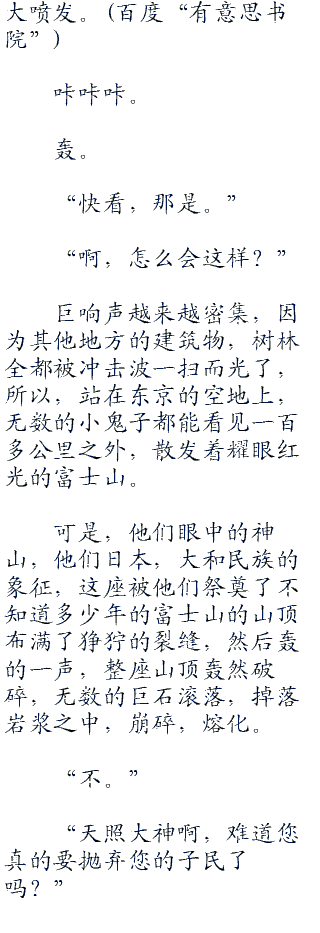 大喷发。(百度“有意思书
院”)
咔咔咔。
轰。
“快看，那是。”
“啊，怎么会这样？”
巨响声越来越密集，因
为其他地方的建筑物，树林
全都被冲击波一扫而光了，
所以，站在东京的空地上，
无数的小鬼子都能看见一百
多公里之外，散发着耀眼红
光的富士山。
可是，他们眼中的神
山，他们日本，大和民族的
象征，这座被他们祭奠了不
知道多少年的富士山的山顶
布满了狰狞的裂缝，然后轰
的一声，整座山顶轰然破
碎，无数的巨石滚落，掉落
岩浆之中，崩碎，熔化。
“不。”
“天照大神啊，难道您
真的要抛弃您的子民了
吗？”